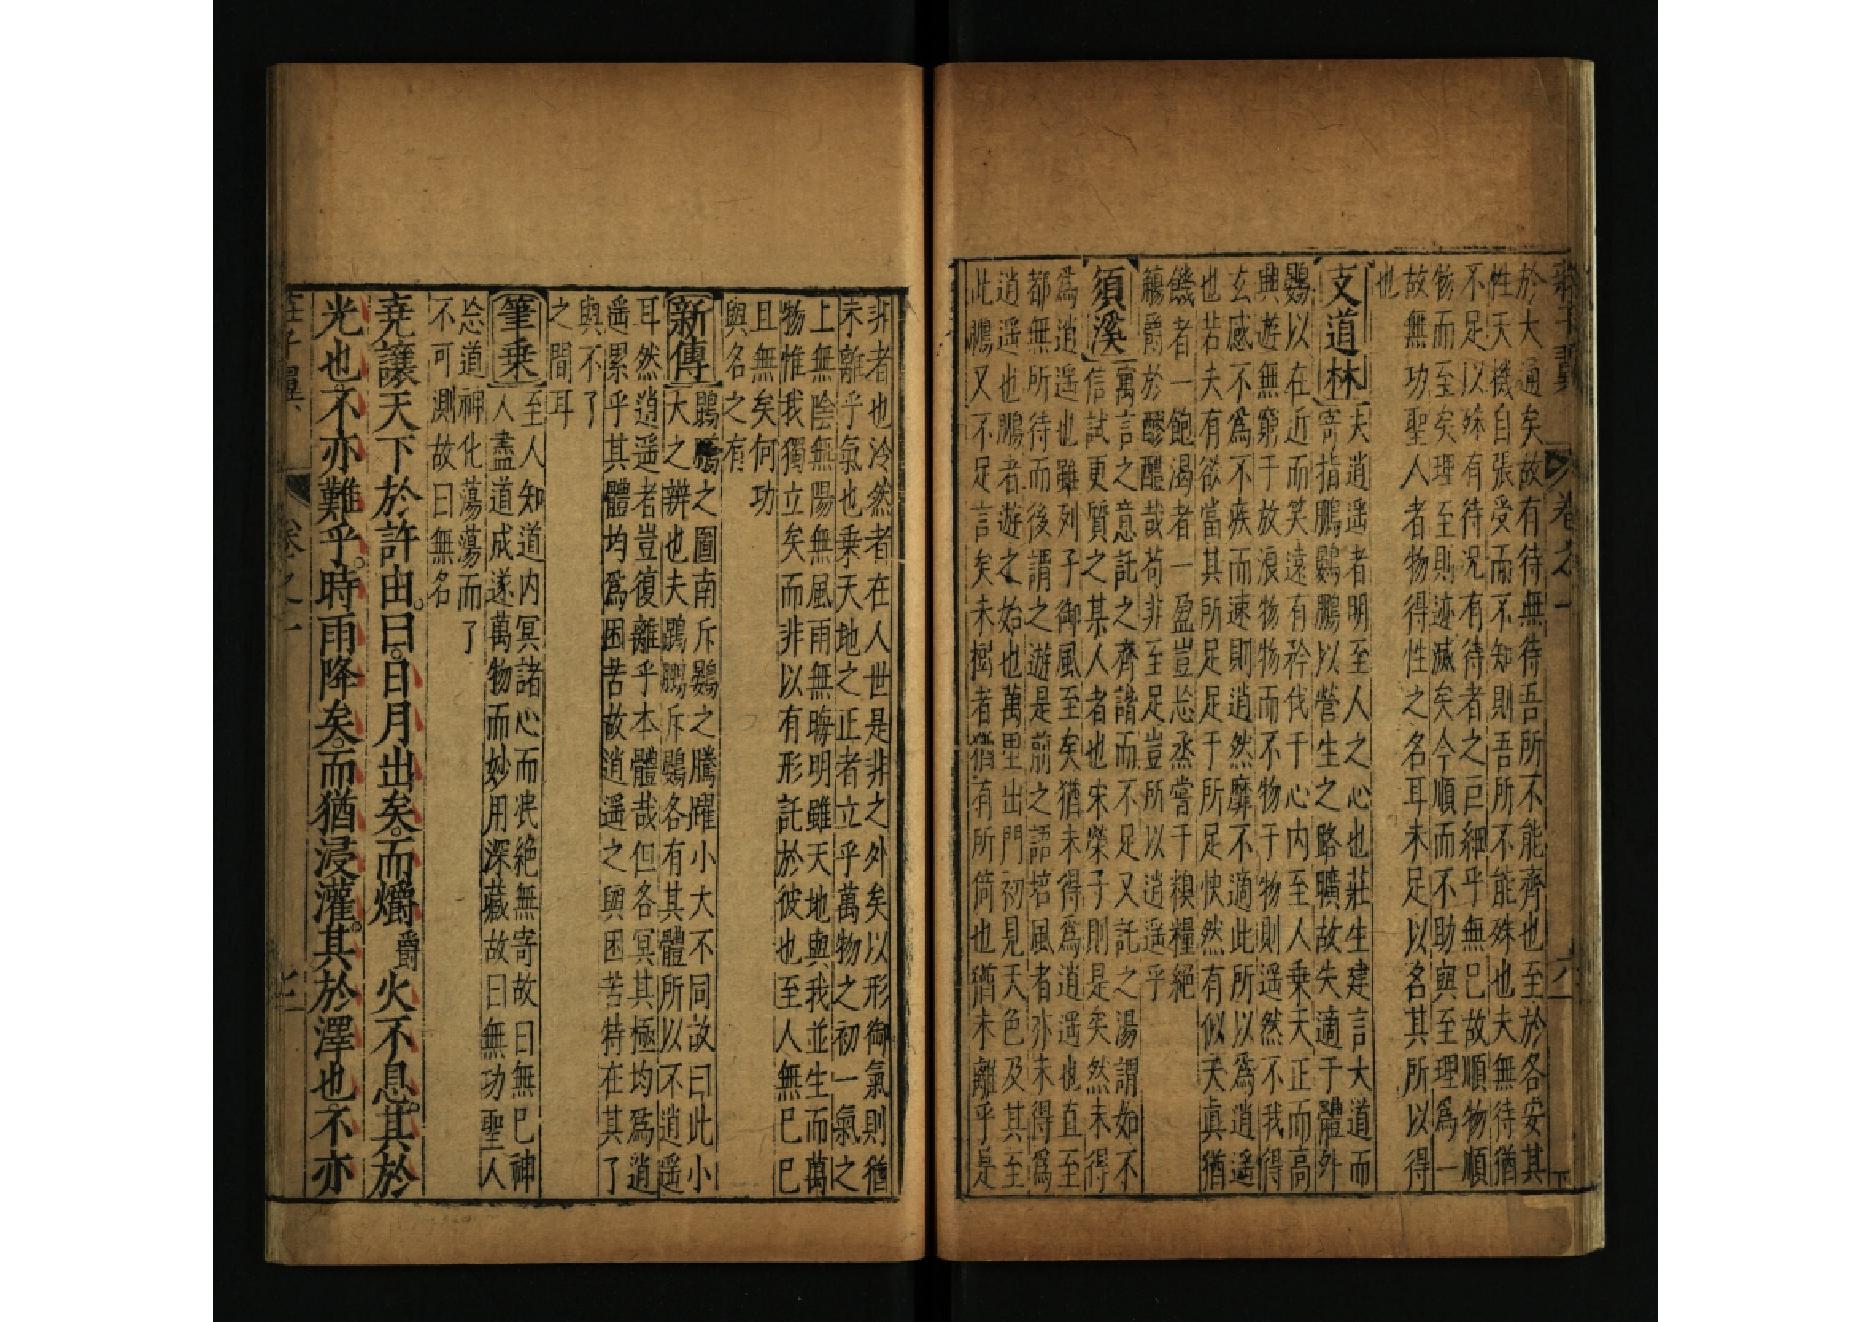 莊子翼 卷之一 六
於大通矣故有待無待吾所不能齊也至於各安其
性天機自張受而不知則吾所不能殊也夫無待猶
不足以殊有待況有待者之巨細乎無已故順物順
物而至矣理至則迹滅矣今順而不助與至理爲一
故無功聖人者物得性之名耳未足以名其所以得
也
支道林
夫逍遥者明至人之心也莊生建言大道而
寄指鵬鷃鵬以營生之路曠故失適于體外
鷃以在近而笑遠有矜伐于心内至人乘天正而高
興遊無窮于放浪物物而不物于物則遥然不我得
玄感不爲不疾而速則逍然靡不適此所以爲逍遥
也若夫有欲當其所足足于所足快然有似天真猶
饑者一飽渴者一盈豈忘烝嘗于糗糧絕
觴爵於醪醴哉苟非至足豈所以逍遥乎
須溪
寓言之意託之齊諧而不足又託之湯謂如不
信試更質之某人者也宋榮子則是矣然未得
爲逍遥也雖列子御風至矣猶未得爲逍遥也直至
都無所待而後謂之遊是前之語培風者亦未得爲
逍遥也鵬者遊之始也萬里出門初見天色及其至
此鵬又不足言矣未樹者猶有所倚也猶未離乎是
非者也泠然者在人世是非之外矣以形御氣則猶
未離乎氣也乗天地之正者立乎萬物之初一氣之
上無陰無陽無風雨無晦明雖天地與我並生而萬
物惟我獨立矣而非以有形託於彼也至人無巳巳
且無矣何功
與名之有
新傳
鵾鵬之圖南斥鷃之騰躍小大不同故曰此小
大之辨也夫鵾鵬斥鷃各有其體所以不逍遥
耳然逍遥者豈復離乎本體哉但各冥其極均爲逍
遥累乎其體均爲困苦故逍遥之與困苦特在其了
與不了
之間耳
筆乗
至人知道内冥諸心而㳽絕無寄故曰無巳神
人盡道成遂萬物而妙用深藏故曰無功聖人
忘道神化蕩蕩而了
不可測故曰無名
堯讓天下於許由曰日月出矣而爝爵火不息其於
光也不亦難乎時雨降矣而猶浸灌其於澤也不亦
莊子翼 卷之一